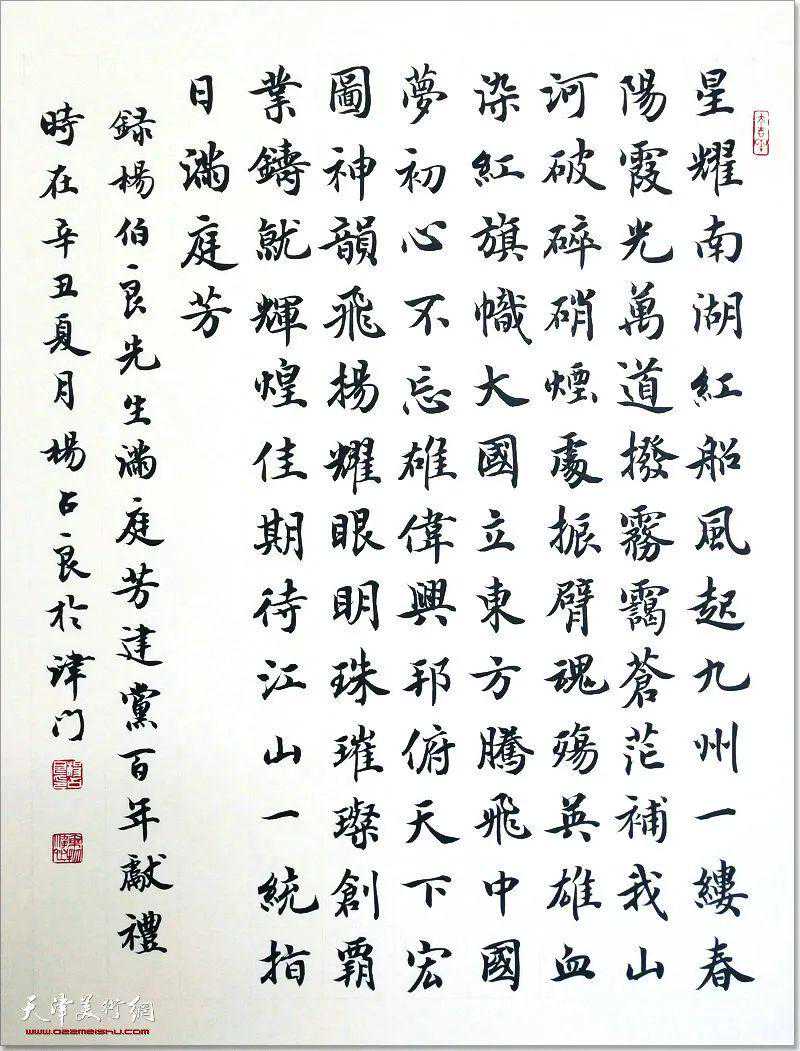 星耀南湖紅船風起九州一縷春
陽霞光萬道撥霧靄蒼茫補我山
河破碎硝煙處振臂魂殤英雄血
染紅旗幟大國立東方騰飛中國
夢初心不忘雄偉興邦俯天下宏
圖神韻飛揚耀眼明珠璀璨創霸
業鑄就輝煌佳期待江山一統指
日滿庭芳
錄楊伯良先生滿庭芳建黨百年獻禮
時在辛丑夏月楊占良於津門
天津美術網